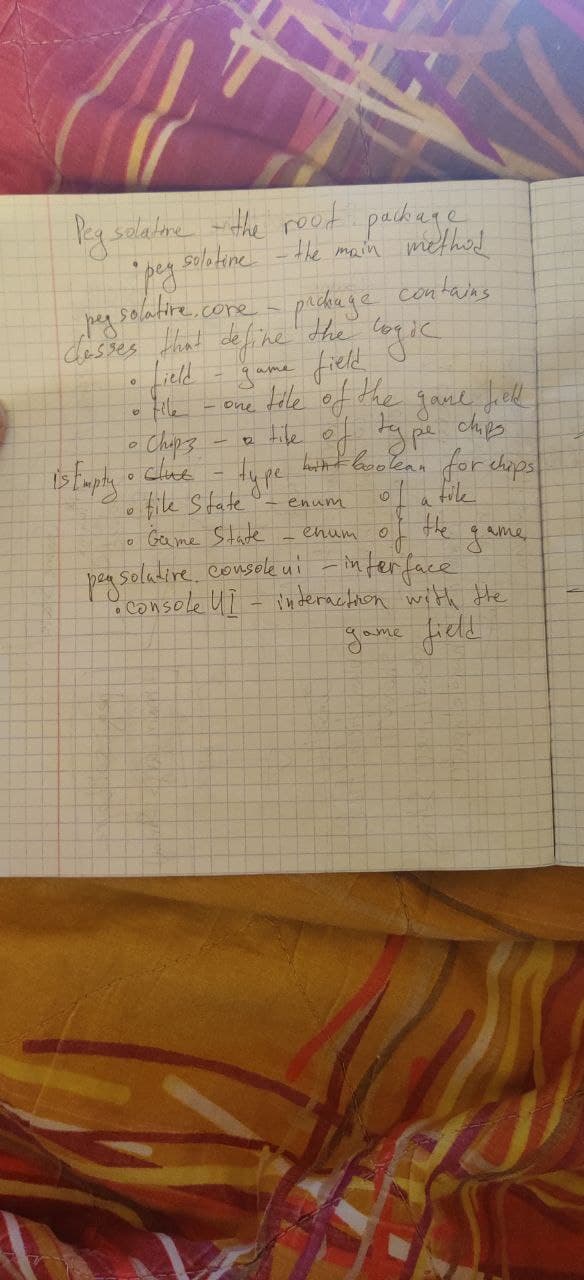 Peg solatire - the root package
• peg solotine - the main method
peg solatire.core - package contains
classes that define the logic
• field - game field
• tile - one tile of the game field
• Chips - a tile of type chips
isEmpty • clue - type boolean for chips
• tile State - enum of a tile
• Game State - enum of the game
peg solative. console ui - interface
• console UI - interaction with the
game field